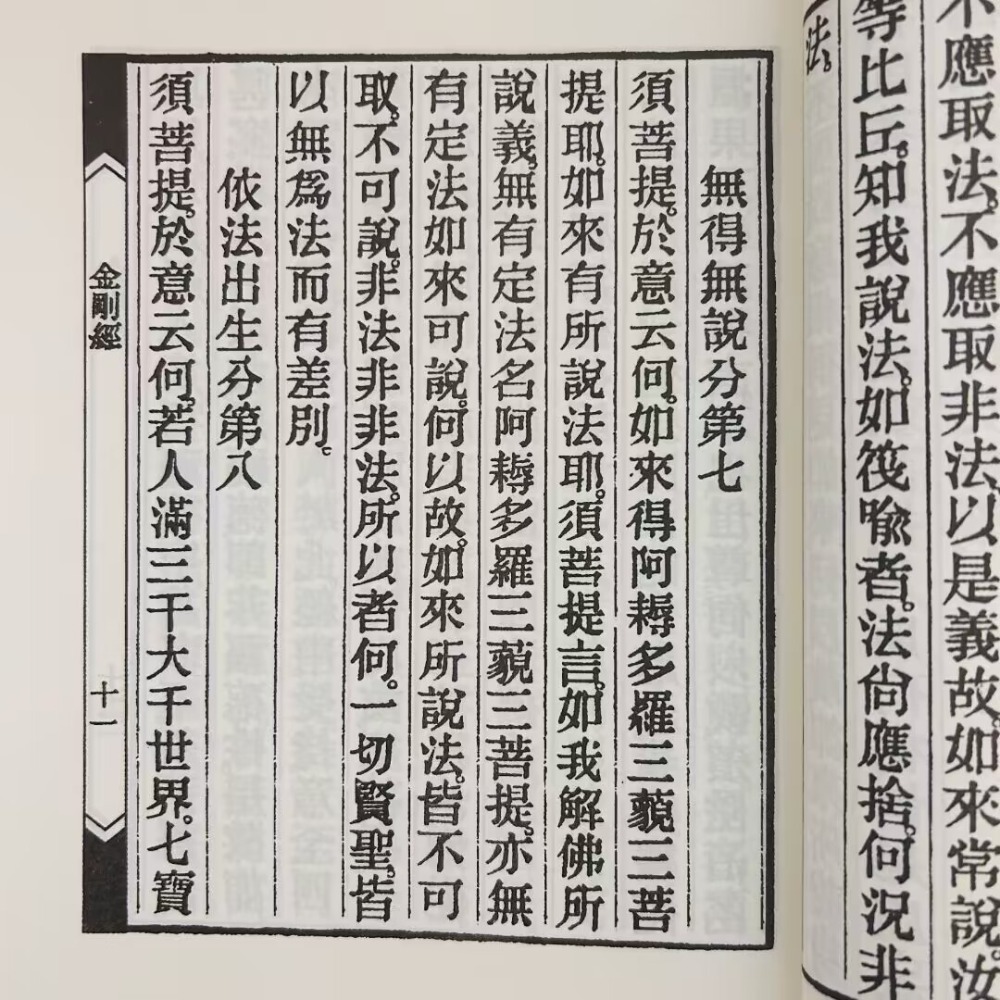 不應取法。不應取非法。以是義故。如來常說。汝
等比丘。知我說法。如筏喻者。法尚應捨。何況非
法。
無得無說分第七
須菩提。於意云何。如來得阿耨多羅三藐三菩
提耶。如來有所說法耶。須菩提言。如我解佛所
說義。無有定法名阿耨多羅三藐三菩提。亦無
有定法如來可說。何以故。如來所說法。皆不可
取。不可說。非法非非法。所以者何。一切賢聖。皆
以無爲法而有差別。
依法出生分第八
須菩提。於意云何。若人滿三千大千世界。七寶
金剛經
十一